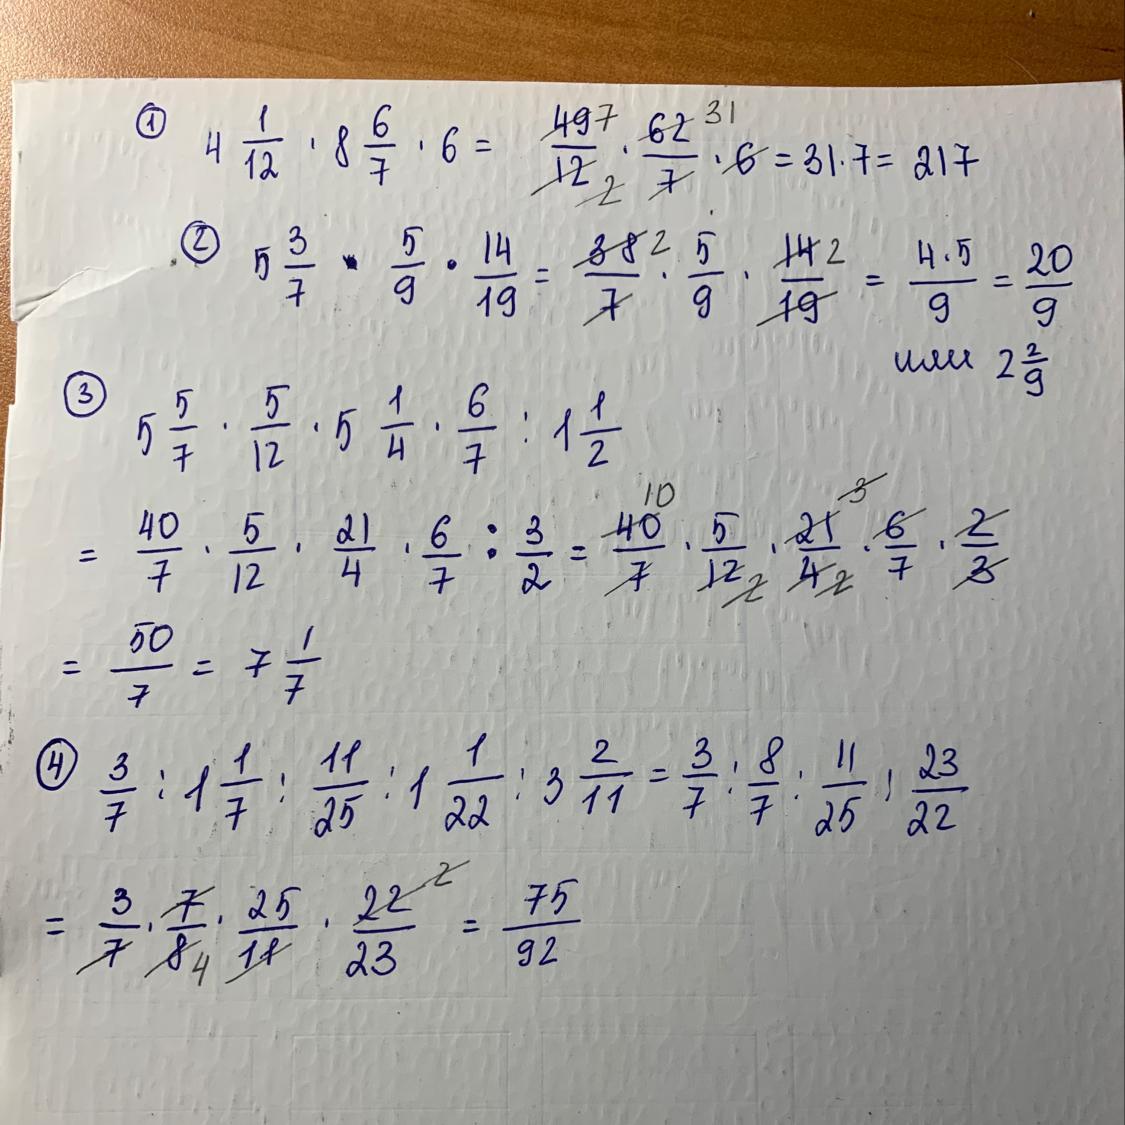 ① 4 1/12 · 8 6/7 · 6 = 49/12 · 62/7 · 6 = 31·7 = 217
7 31 2
② 5 3/7 · 5/9 · 14/19 = 38/7 · 5/9 · 14/19 = 4·5/9 = 20/9
2 2
или 2 2/9
③ 5 5/7 · 5/12 · 5 1/4 · 6/7 : 1 1/2
= 40/7 · 5/12 · 21/4 · 6/7 : 3/2 = 40/7 · 5/12 · 21/4 · 6/7 · 2/3
10 3 2 2
= 50/7 = 7 1/7
④ 3/7 : 1 1/7 : 11/25 : 1 1/22 : 3 2/11 = 3/7 : 8/7 : 11/25 : 23/22
= 3/7 · 7/8 · 25/11 · 22/23 = 75/92
4 2